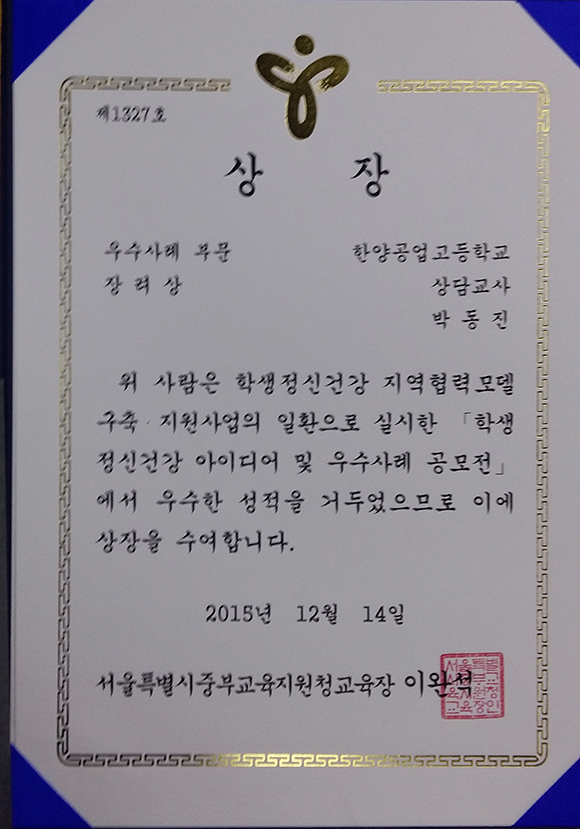 제1327호
상 장
우수사례 부문 한양공업고등학교
장 려 상 상담교사
박 동 진
위 사람은 학생정신건강 지역협력모델
구축·지원사업의 일환으로 실시한 「학생
정신건강 아이디어 및 우수사례 공모전」
에서 우수한 성적을 거두었으므로 이에
상장을 수여합니다.
2015년 12월 14일
서울특별시중부교육지원청교육장 이완석
서울특별
시중부교
육지원청
교육장인